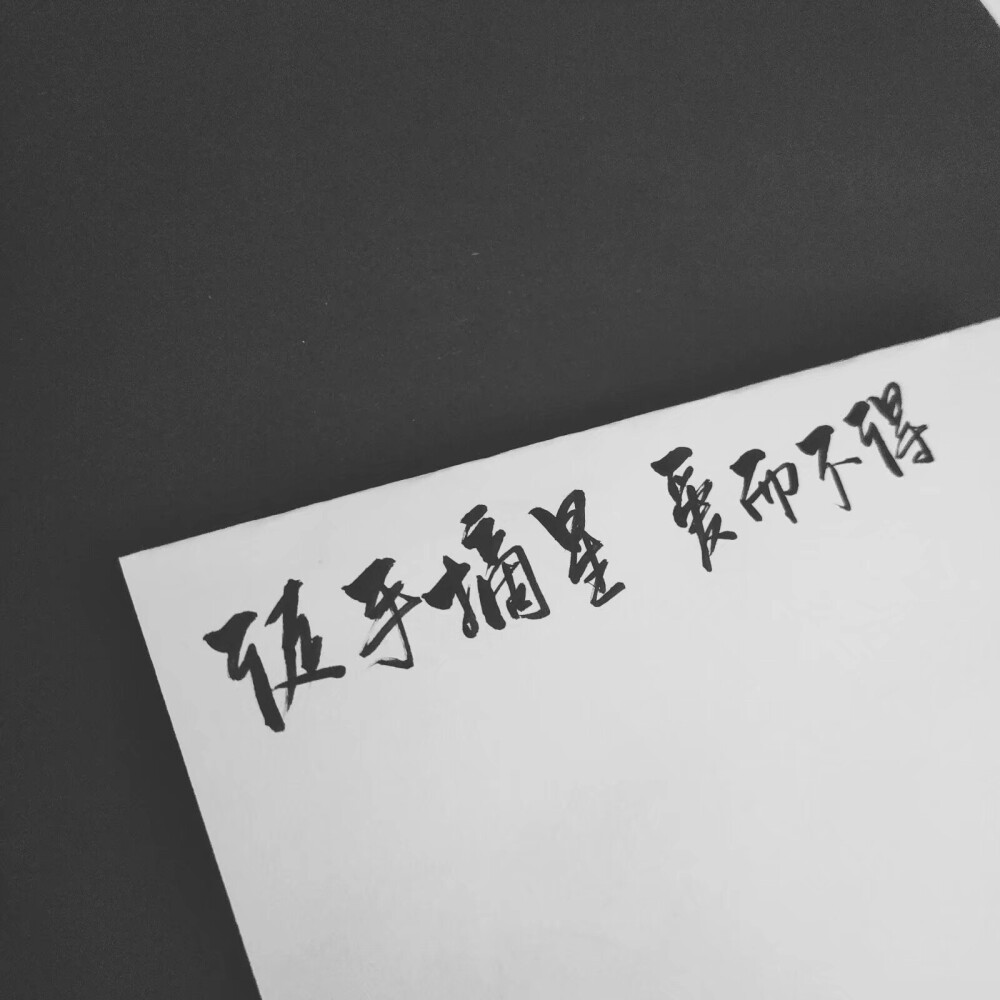 徒手摘星 爱而不得